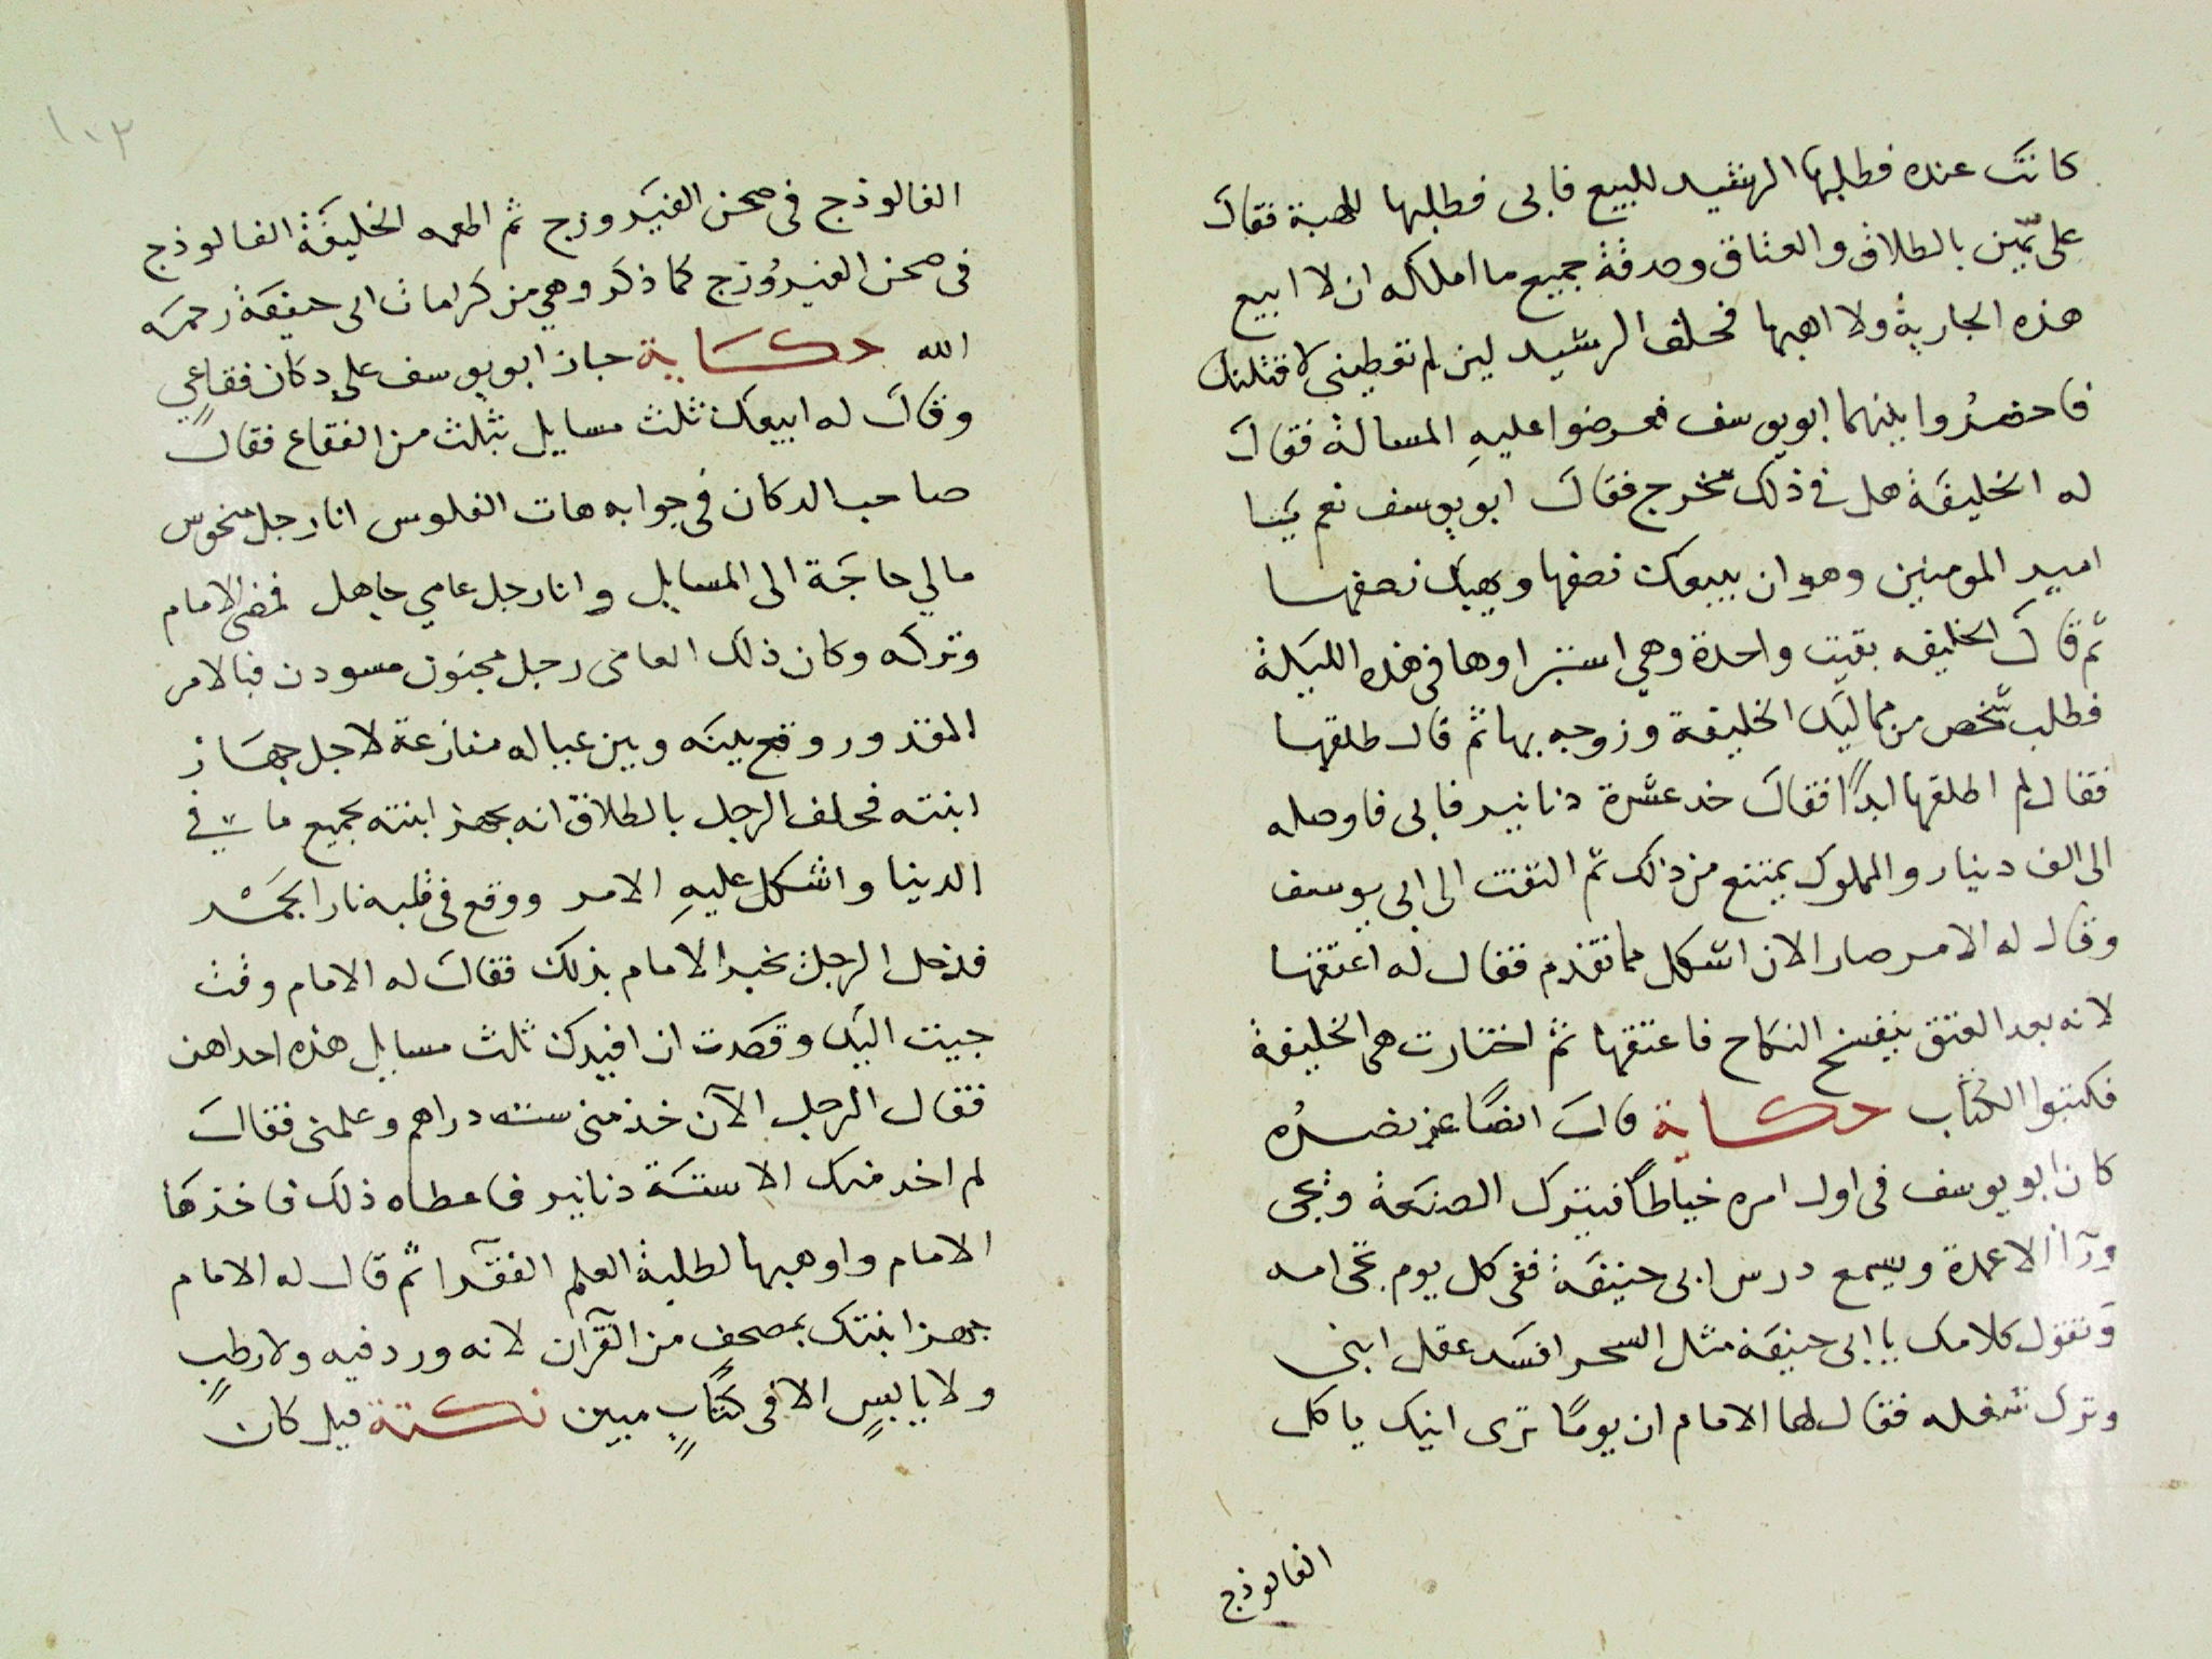 كانت عنده فطلبها الرشيد للبيع فابى فطلبها للهبة فقال
على يمين بالطلاق والعتاق وصدقة جميع ما املكه ان لا ابيع
هذه الجارية ولا اهبها فحلف الرشيد لين لم تعطيني لاقتلنك
فاحضروا بينهما ابو يوسف فعرضوا عليه المسالة فقال
له الخليفة هل في ذلك مخرج فقال ابو يوسف نعم يا
امير المومنين وهو ان يبيعك نصفها ويهبك نصفها
ثم قال الخليفه بقيت واحدة وهي استبراوها في هذه الليلة
فطلب شخص من مماليك الخليفة وزوجه بها ثم قال طلقها
فقال لم اطلقها ابدًا فقال خد عشرة دنانير فابى فاوصله
الى الف دينار والمملوك يمتنع من ذلك ثم التفت الى ابي يوسف
وقال له الامر صار الان اشكل مما تقدم فقال له اعتقها
لانه بعد العتق ينفسخ النكاح فاعتقها ثم اختارت هي الخليفة
فكتبوا الكتاب حكاية قال ايضًا عن نصره
كان ابو يوسف في اول امره خياطًا فيترك الصنعة ويجى
ورآ الاعمدة ويسمع درس ابى حنيفة ففى كل يوم تجى امه
وتقول كلامك يا ابى حنيفة مثل السحر افسد عقل ابنى
وترك شغله فقال لها الامام ان يومًا ترى ابنك ياكل
الفالوذج
١٠٢
الفالوذج فى صحن الفيروزج ثم اطعمه الخليفة الفالوذج
فى صحن الفيروزج كما ذكر وهي من كرامات ابى حنيفة رحمه
الله حكاية جاز ابو يوسف على دكان فقاعي
وقال له ابيعك ثلث مسايل بثلث من الفقاع فقال
صاحب الدكان في جوابه هات الفلوس انا رجل منحوس
مالي حاجة الى المسايل وانا رجل عامي جاهل فمضى الامام
وتركه وكان ذلك العامى رجل مجنون مسودن فبالامر
المقدور وقع بينه وبين عياله منازعة لاجل جهاز
ابنته فحلف الرجل بالطلاق انه يجهز ابنته بجميع ما في
الدينا واشكل عليه الامر ووقع فى قلبه نار الجمر
فدخل الرجل يخبر الامام بذلك فقال له الامام وقت
جيت اليك وقصدت ان افيدك ثلث مسايل هذه احداهن
فقال الرجل الآن خذ منى سته دراهم وعلمنى فقال
لم اخد منك الا ستة دنانير فاعطاه ذلك فاخذها
الامام واوهبها لطلبة العلم الفقرآ ثم قال له الامام
جهز ابنتك بمصحف من القرآن لانه ورد فيه ولا رطبٍ
ولا يابسٍ الا فى كتابٍ مبين نكتة قيل كان